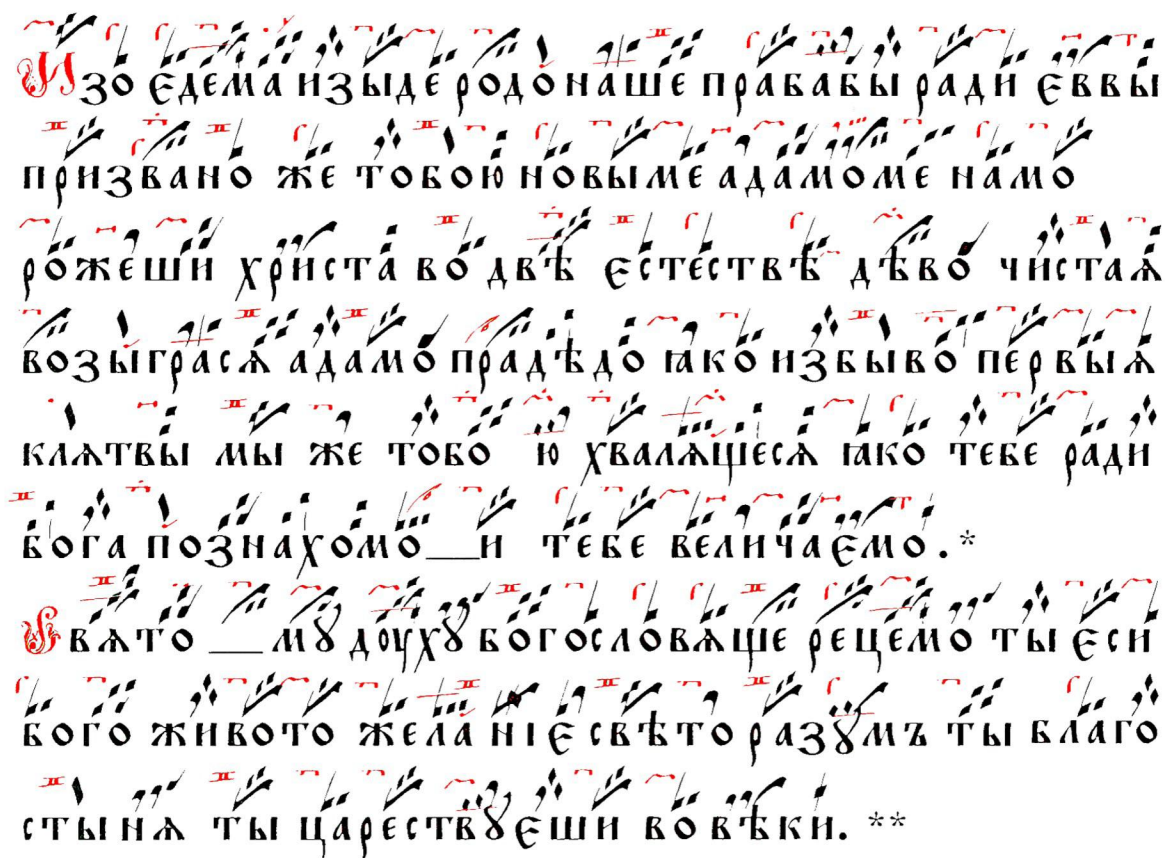 Изо едема изыде родо наше прабабы ради еввы
призвано же тобою новыме адамоме намо
рожеши христа во двѣ естествѣ дѣво чистаѧ
возыграсѧ адамо прадѣдо ꙗко избыво первыѧ
клѧтвы мы же тобо ю хвалѧщесѧ ꙗко тебе ради
бога познахомо__и тебе величаемо.*
Свѧто __мꙋ доухꙋ богословѧще рецемо ты еси
бого живото желаніе свѣто разꙋмъ ты благо
стынѧ ты царествꙋеши во вѣки. **